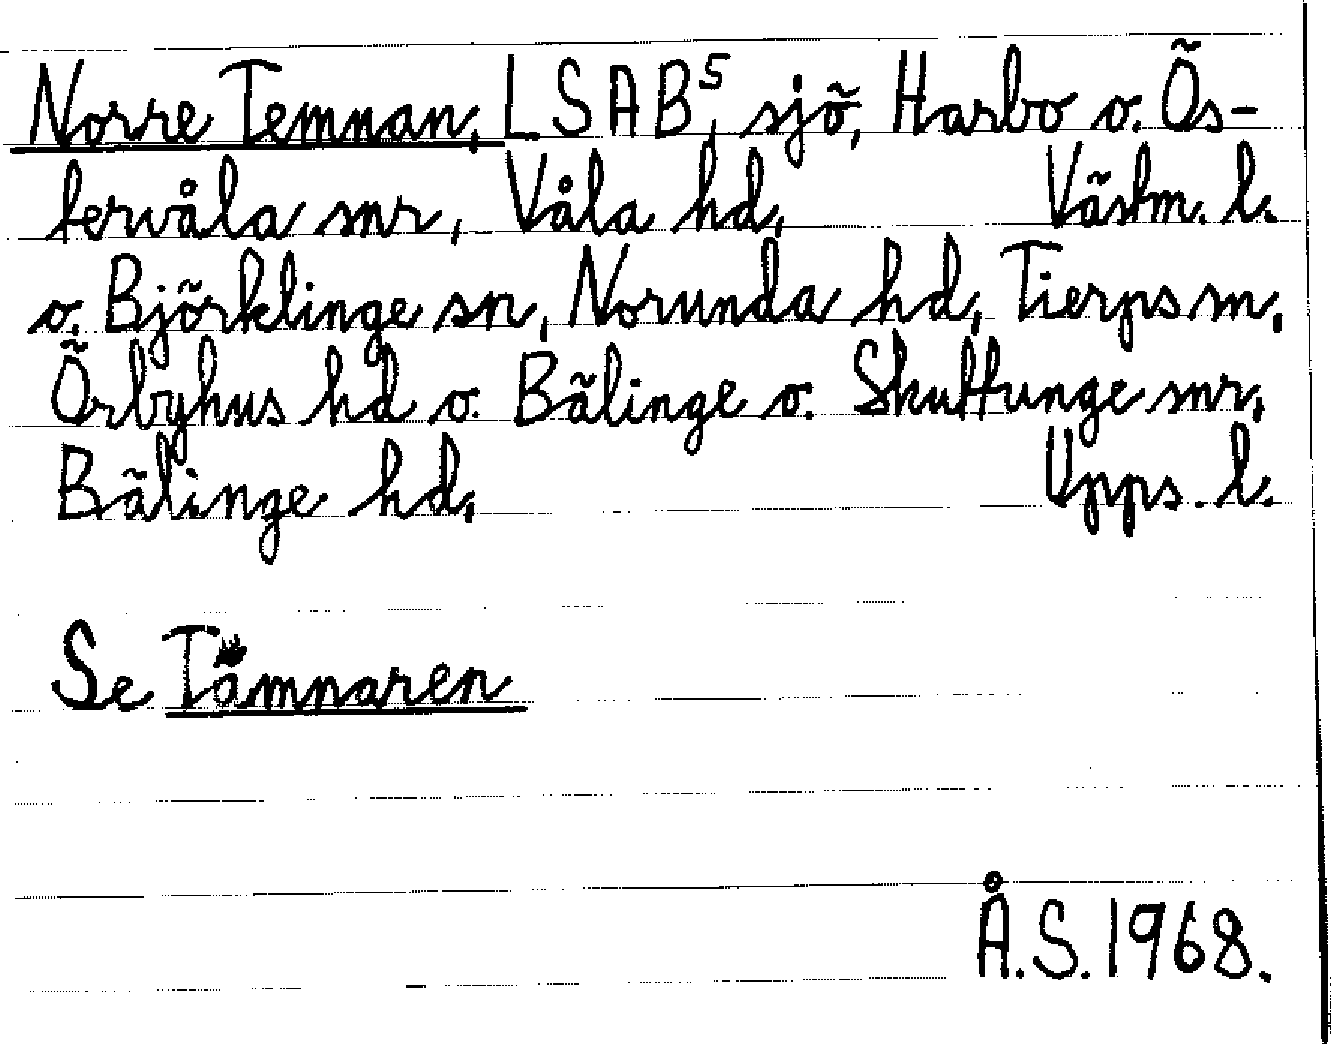 Norre Temnan, LSAB⁵, sjö, Harbo o. Ös-
tervåla snr, Våla hd, Västm. l.
o. Björklinge sn, Norunda hd, Tierps sn,
Örbyhus hd o. Bälinge o. Skuttunge snr,
Bälinge hd, Upps. l.
Se Tämnaren
Å.S. 1968.